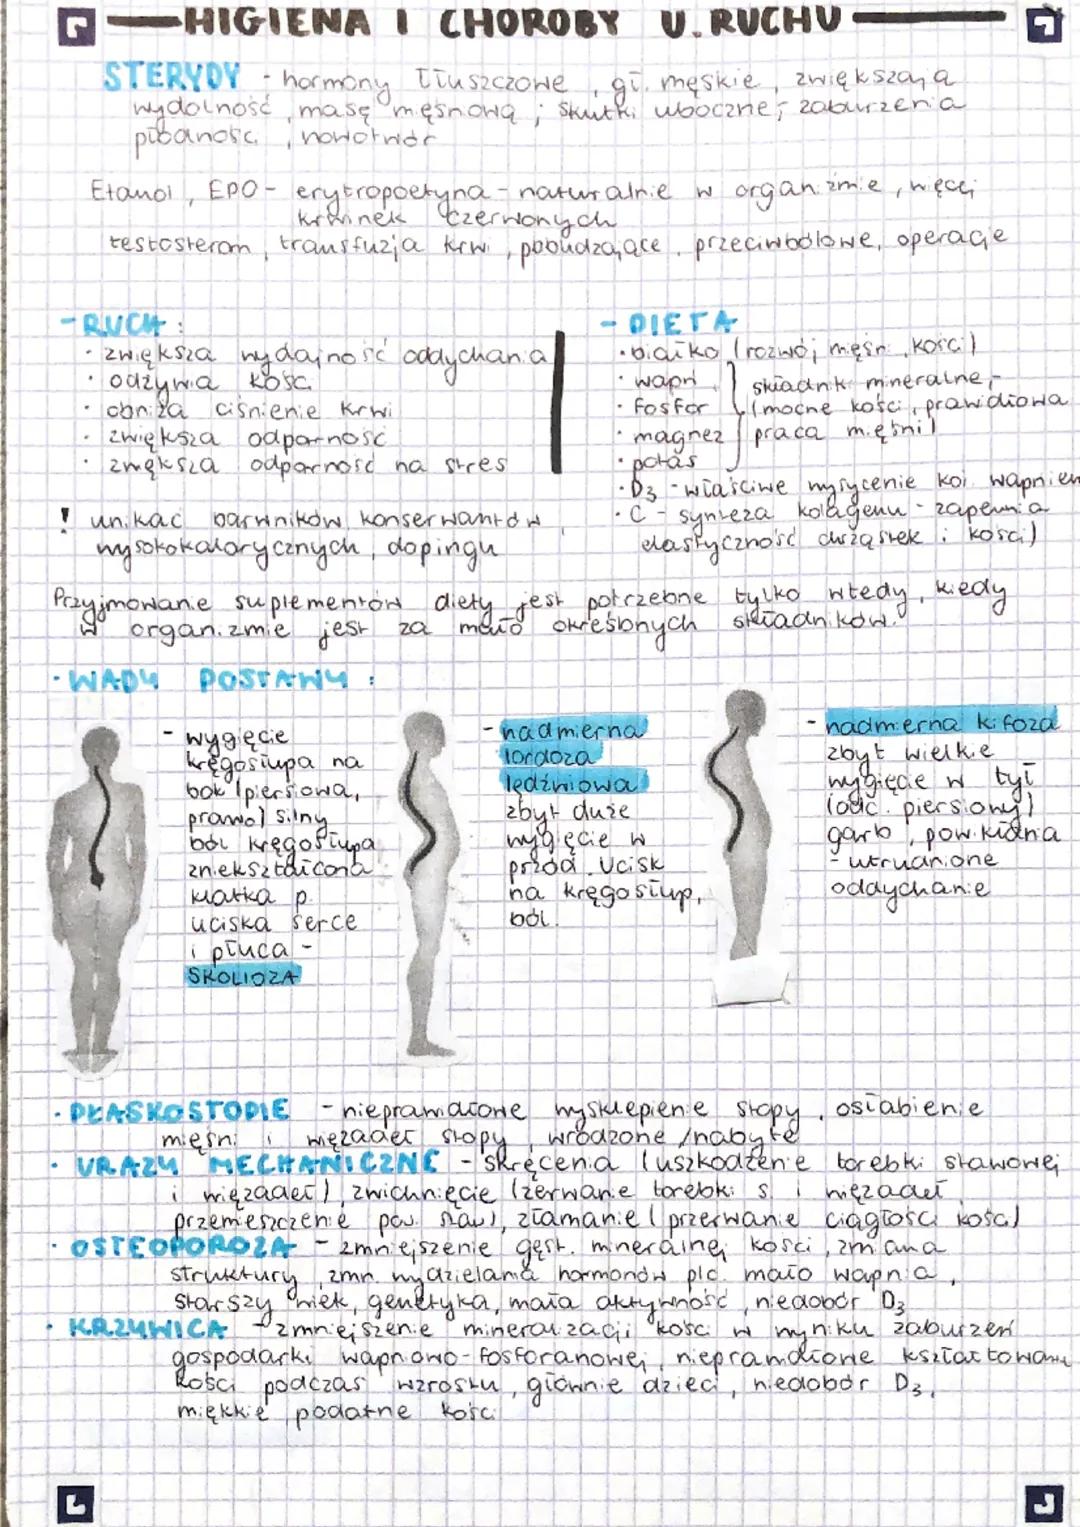 HIGIENA I CHOROBY U. RUCHU
STERYDY - hormony tłuszczowe, gł. męskie, zwiększają
wydolność, masę mięśniową; skutki uboczne; zaburzenia
płodności, nowotwór
Etanol, EPO - erytropoetyna - naturalnie w organizmie, więcej
krwinek czerwonych
testosteron, transfuzja krwi, pobudzające, przeciwbólowe, operacje
- RUCH:
· zwiększa wydajność oddychania
· odżywia kości
· obniża ciśnienie krwi
· zwiększa odporność
· zwiększa odporność na stres
! unikać barwników, konserwantów,
wysokokalorycznych, dopingu
- DIETA
· białko (rozwój mięśni, kości)
· wapń
· fosfor
· magnez
· potas
składniki mineralne,-
(mocne kości, prawidłowa
praca mięśni)
· D3 - właściwe wysycenie kości wapniem
· C - synteza kolagenu - zapewnia
elastyczność chrząstek i kości)
Przyjmowanie suplementów diety jest potrzebne tylko wtedy, kiedy
w organizmie jest za mało określonych składników.
· WADY POSTAWY:
- wygięcie
kręgosłupa na
bok (piersiowa,
prawo) silny
ból kręgosłupa
zniekształcona
klatka p.
uciska serce
i płuca -
SKOLIOZA
- nadmierna
lordoza
lędźwiowa
zbyt duże
wygięcie w
przód. Ucisk
na kręgosłup,
ból.
- nadmierna kifoza
zbyt wielkie
wygięcie w tył
(odc. piersiowy)
garb, pow. kłatna
- utrudnione
oddychanie
· PŁASKOSTOPIE - nieprawidłowe wysklepienie stopy, osłabienie
mięśni i więzadeł stopy, wrodzone / nabyte
· URAZY MECHANICZNE - skręcenia (uszkodzenie torebki stawowej
i więzadeł), zwichnięcie (zerwanie torebki s. i więzadeł,
przemieszczenie pow. staw), złamanie (przerwanie ciągłości kości)
· OSTEOPOROZA - zmniejszenie gęst. mineralnej kości, zmiana
struktury, zmn. wydzielania hormonów płc. mało wapnia,
starszy wiek, genetyka, mała aktywność, niedobór D3
· KRZYWICA - zmniejszenie mineralizacji kości w wyniku zaburzeń
gospodarki wapniowo-fosforanowej, nieprawidłowe kształtowanie
kości podczas wzrostu, głównie dzieci, niedobór D3,
miękkie podatne kości